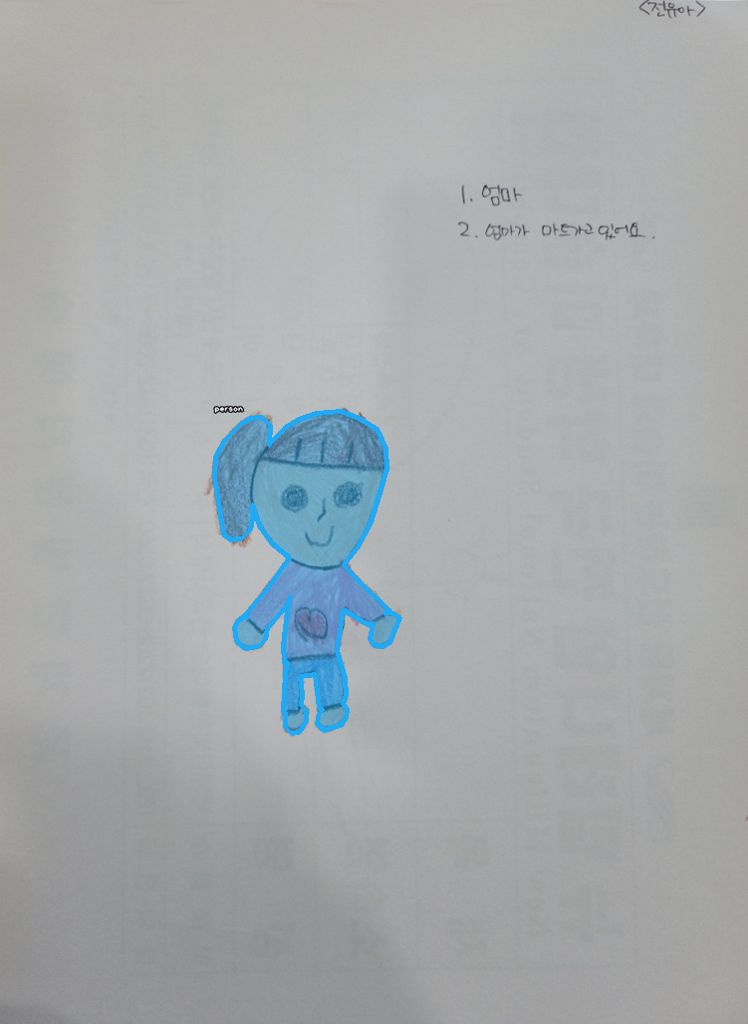 <전유아>
1. 엄마
2. 엄마가 마트가고 있어요.
person